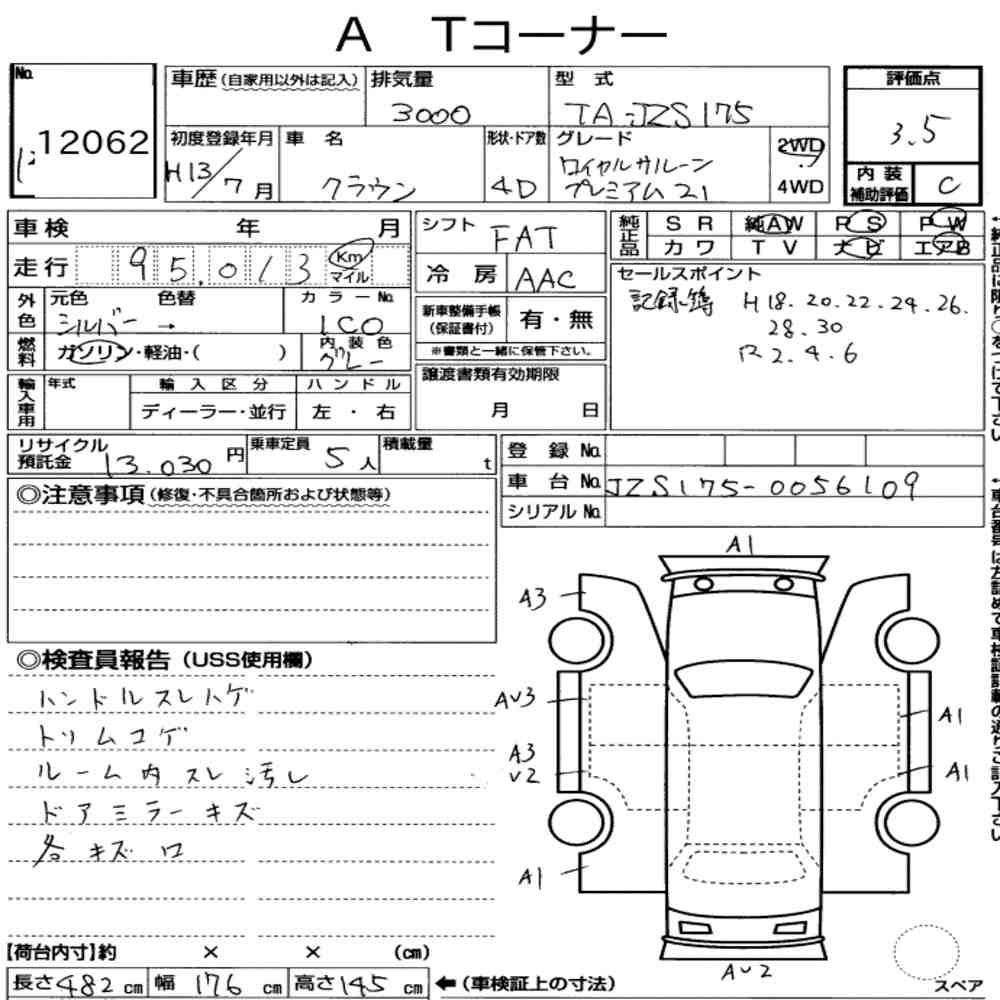 A Tコーナー
No.
12062
車歴(自家用以外は記入)
排気量
3000
型 式
TA-JZS175
初度登録年月
H13/7月
車 名
クラウン
形状・ドア数
4D
グレード
ロイヤルサルーン
プレミアム21
2WD
4WD
評価点
3.5
内 装
補助評価
C
車検 年 月
走行
95,013
Km
マイル
シフト
FAT
冷 房
AAC
純正品
S R 純AW P S P W
カ ワ T V ナビ エアB
外色
元色 色替
シルバー →
カラーNo.
1C0
燃料
ガソリン・軽油・( )
内 装 色
グレー
新車整備手帳
(保証書付)
有・無
※書類と一緒に保管下さい。
セールスポイント
記録簿 H18.20.22.24.26.
28.30
R2.4.6
輸入車用
年式
輸 入 区 分
ディーラー・並行
ハ ン ド ル
左 ・ 右
譲渡書類有効期限
月 日
リサイクル
預託金
13.030円
乗車定員
5人
積載量
t
登 録 No.
車 台 No.
JZS175-0056109
シリアル No.
◎注意事項(修復・不具合箇所および状態等)
◎検査員報告(USS使用欄)
ハンドルスレハゲ
トリムコゲ
ルーム内スレ汚し
ドアミラーキズ
各キズ口
A1
A3
AU3
A3
U2
A1
A1
A1
AU2
スペア
【荷台内寸】約 × × (cm)
長さ482cm 幅 176cm 高さ145cm
←(車検証上の寸法)